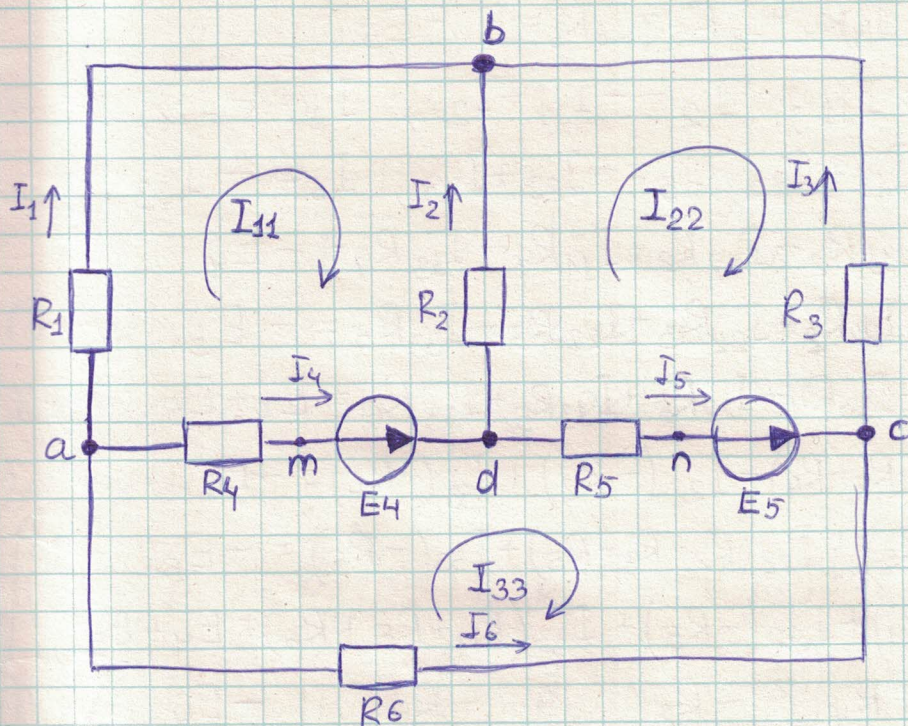 b
I1
I11
I2
I22
I3
R1
R2
R3
I4
I5
a
R4
m
E4
d
R5
n
E5
c
I33
I6
R6